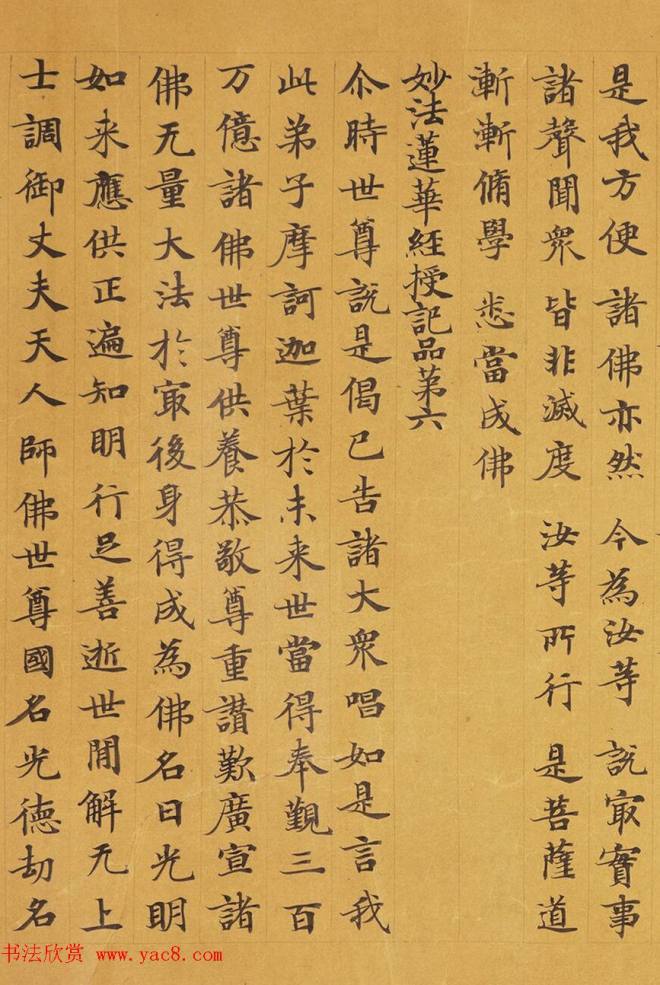 是我方便 諸佛亦然 今為汝等 說冣實事
諸聲聞衆 皆非滅度 汝等所行 是菩薩道
漸漸脩學 悉當成佛
妙法蓮華經授記品第六
尒時世尊說是偈已告諸大衆唱如是言我
此弟子摩訶迦葉於未来世當得奉覲三百
万億諸佛世尊供養恭敬尊重讃歎廣宣諸
佛无量大法於冣後身得成為佛名曰光明
如来應供正遍知明行足善逝世間解无上
士調御丈夫天人師佛世尊國名光德劫名
书法欣赏 www.yac8.com